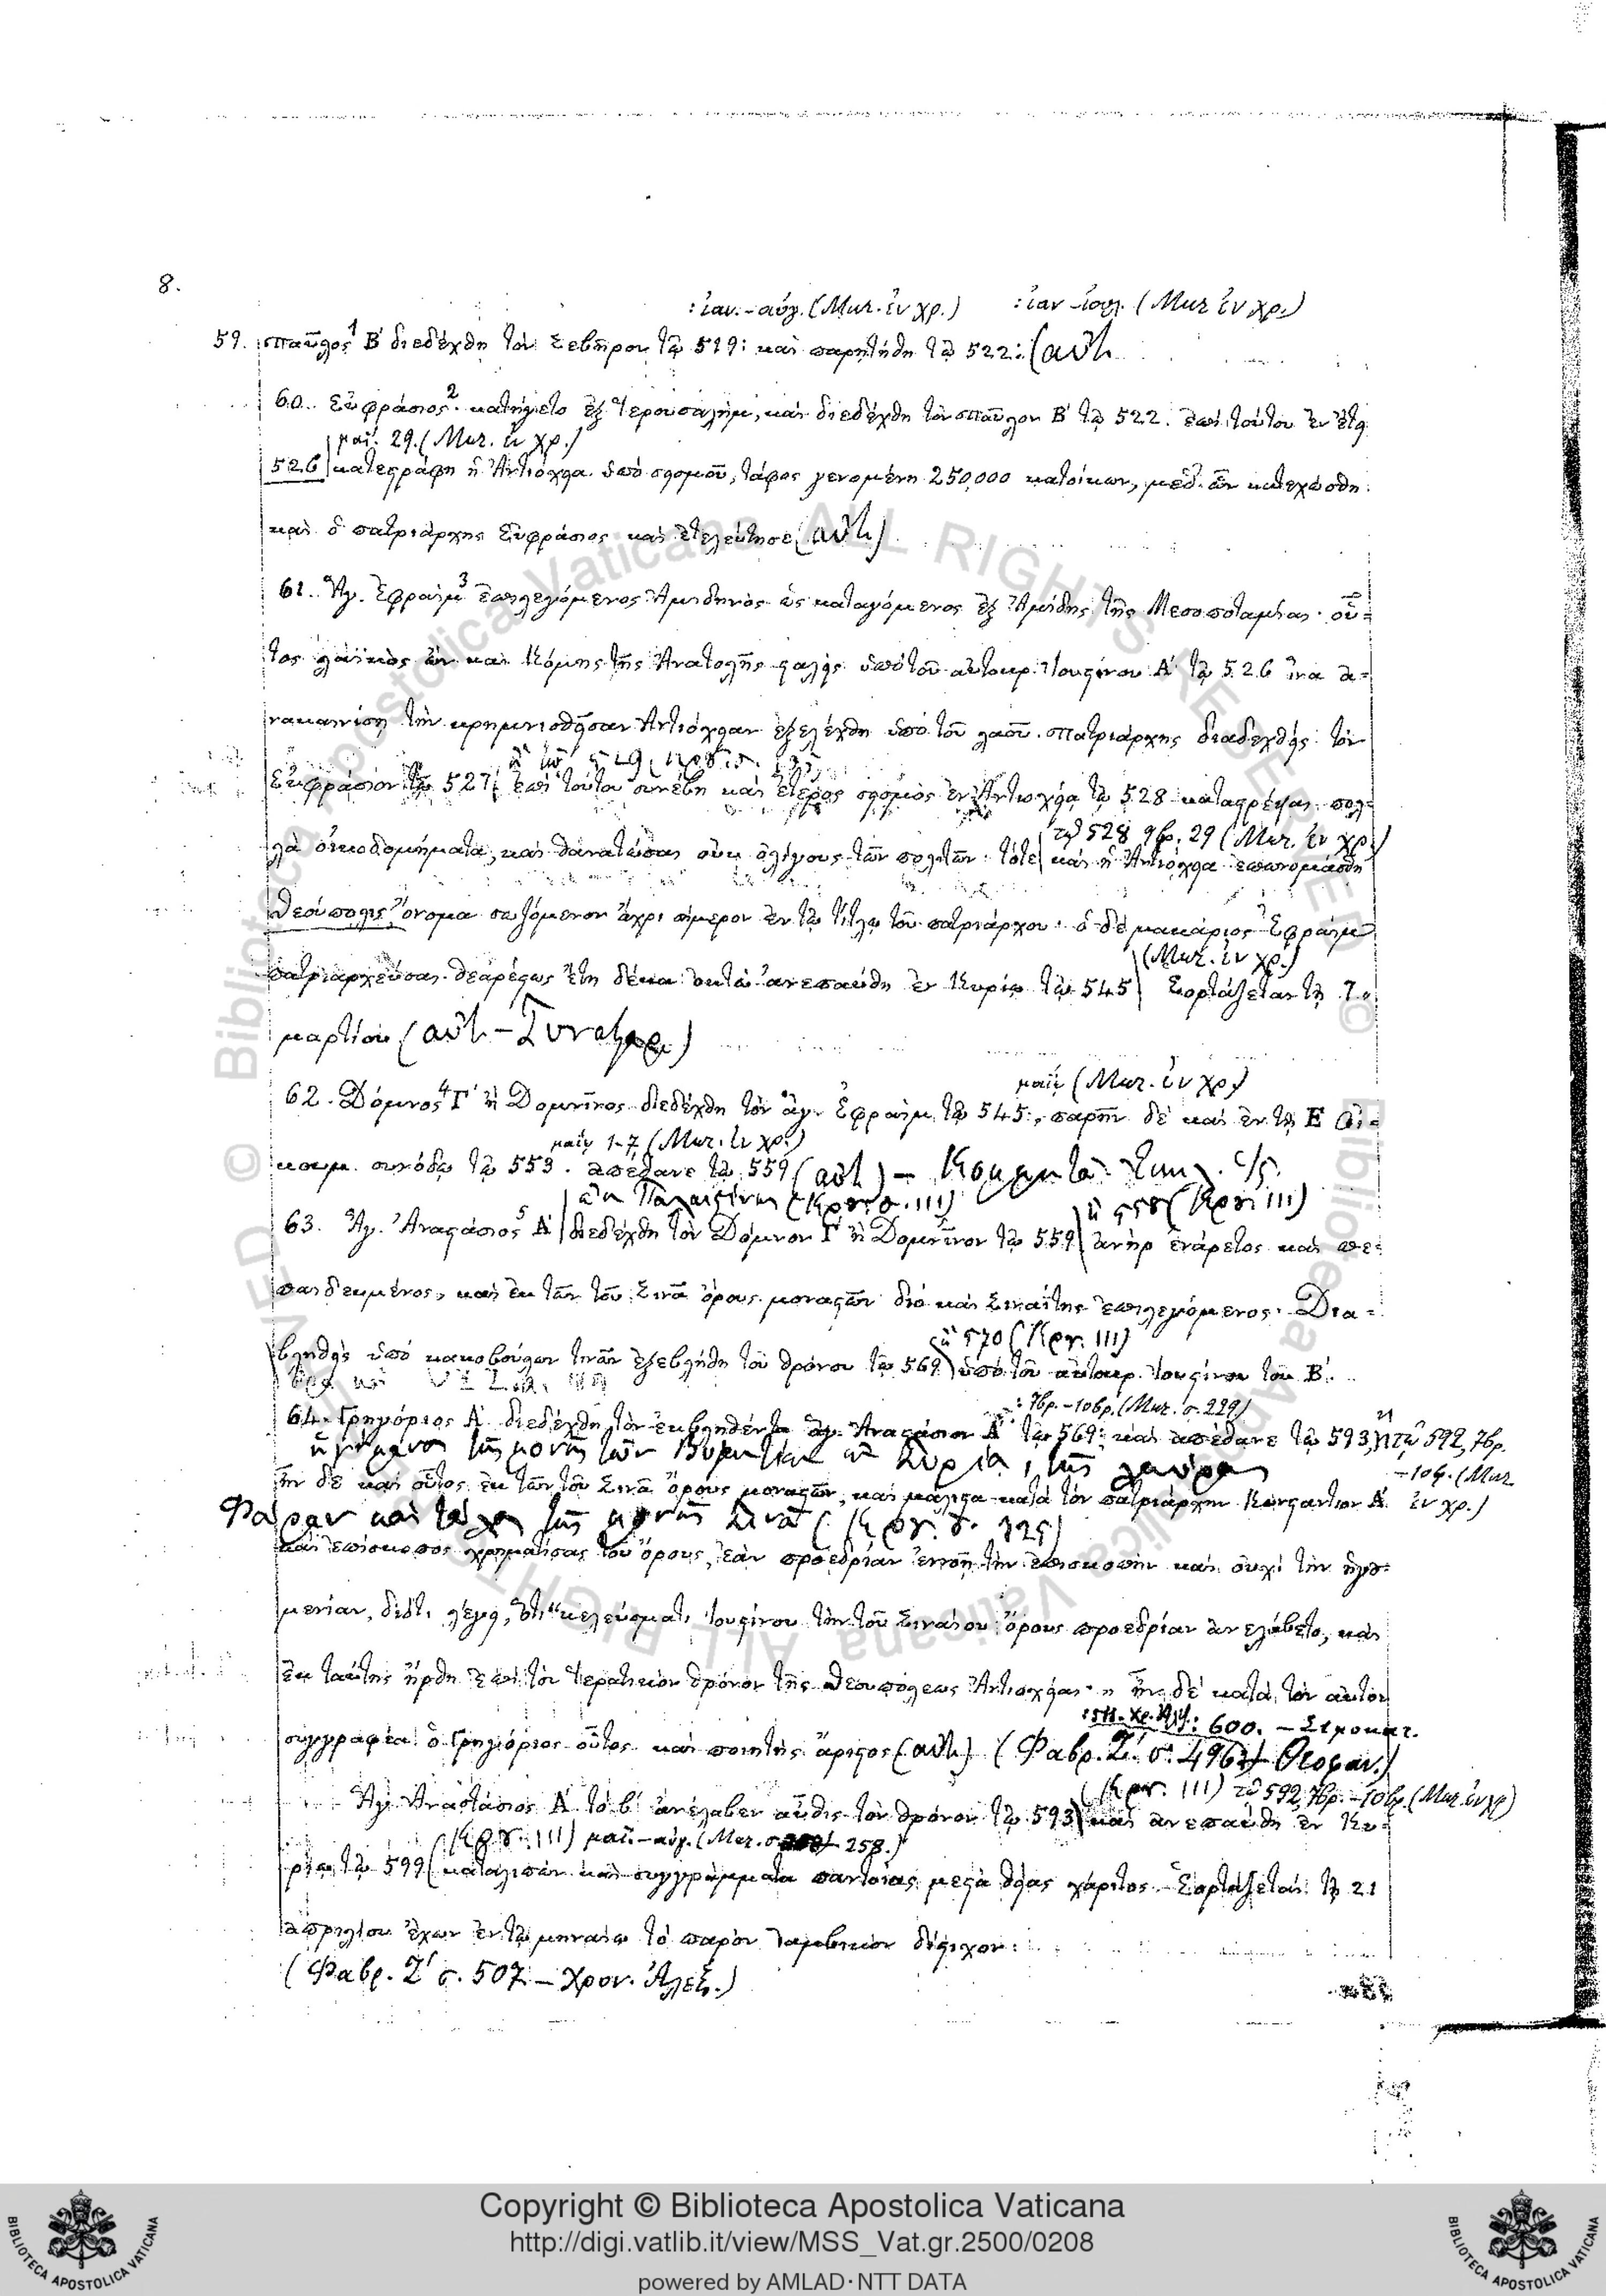 8.
: ἰαν. - αὐγ. (Μυζ. ἐν χρ.) : ἰαν - ἰουλ. (Μυζ ἐν χρ.)
59. Παῦλος¹ Β΄ διεδέχθη τὸν Σεβῆρον τῷ 519: καὶ παρητήθη τῷ 522: (αὐτ
60. Εὐφράσιος². κατήγετο ἐξ Ἱερουσαλήμ, καὶ διεδέχθη τὸν Παῦλον Β΄ τῷ 522. ἐπὶ τούτου ἐν ἔτει
μαΐ. 29. (Μυζ. ἐν χρ.)
526 κατεστράφη ἡ Ἀντιόχεια ὑπὸ σεισμοῦ, τάφος γενομένη 250,000 κατοίκων, μεθ' ὧν κατεχώσθη
καὶ ὁ πατριάρχης Εὐφράσιος καὶ ἐτελεύτησε (αὐτ)
61. Ἅγ. Ἐφραὶμ³ ἐπιλεγόμενος Ἀμιδηνὸς ὡς καταγόμενος ἐξ Ἀμίδης τῆς Μεσοποταμίας· οὗ=
τος λαϊκὸς ὢν καὶ Κόμης τῆς Ἀνατολῆς σταλεὶς ὑπὸ τοῦ αὐτοκρ. Ἰουστίνου Α΄ τῷ 526 ἵνα ἀ=
νακαινίσῃ τὴν κρημνισθεῖσαν Ἀντιόχειαν ἐξελέχθη ὑπὸ τοῦ λαοῦ πατριάρχης διαδεχθεὶς τὸν
Εὐφράσιον τῷ 527· ἐπὶ τούτου συνέβη καὶ ἕτερος σεισμὸς ἐν Ἀντιοχείᾳ τῷ 528 καταστρέψας πολ=
τῷ 528 9βρ. 29 (Μυζ. ἐν χρ.)
λὰ οἰκοδομήματα, καὶ θανατώσας οὐκ ὀλίγους τῶν πολιτῶν· τότε καὶ ἡ Ἀντιόχεια ἐπωνομάσθη
Θεούπολις ὄνομα σωζόμενον ἄχρι σήμερον ἐν τῷ τίτλῳ τοῦ πατριάρχου· ὁ δὲ μακάριος Ἐφραὶμ
(Μυζ. ἐν χρ.)
πατριαρχεύσας θεαρέστως ἔτη δέκα ὀκτὼ ἀνεπαύθη ἐν Κυρίῳ τῷ 545 Ἑορτάζεται τῇ 7
μαρτίου (αὐτ - Συναξαρ.)
μαΐῳ (Μυζ. ἐν χρ.)
62. Δόμνος⁴ Γ΄ ἢ Δομνῖνος διεδέχθη τὸν ἅγ. Ἐφραὶμ τῷ 545:, παρῆν δὲ καὶ ἐν τῇ Ε Οἰ=
μαΐῳ 1-7, (Μυζ. ἐν χρ.)
κουμ. συνόδῳ τῷ 553. ἀπέθανε τῷ 559 (αὐτ) –
ἐκ Παλαιστίνης (Κρον σ. III) ἢ 558 (Κρον III)
63. Ἅγ. Ἀναστάσιος⁵ Α΄ διεδέχθη τὸν Δόμνον Γ΄ ἢ Δομνῖνον τῷ 559 ἀνὴρ ἐνάρετος καὶ πε=
παιδευμένος, καὶ ἐκ τῶν τοῦ Σινᾶ ὄρους μοναστῶν διὸ καὶ Σιναΐτης ἐπιλεγόμενος. Δια=
ἢ 570 (Κρν. III)
βληθεὶς ὑπὸ κακοβούλων τινῶν ἐξεβλήθη τοῦ θρόνου τῷ 569 ὑπὸ τοῦ αὐτοκρ. Ἰουστίνου τοῦ Β΄.
: 7βρ. - 10βρ. (Μυζ. σ. 229)
64. Γρηγόριος Α΄ διεδέχθη τὸν ἐκβληθέντα ἅγ. Ἀναστάσιον Α΄ τῷ 569: καὶ ἀπέθανε τῷ 593, ἢ τῷ 592, 7βρ.
- 10β. (Μυζ
ἐν χρ.)
ἡγούμενος τῆς μονῆς τῶν Βυζαντίων ἐν Συρίᾳ, τῆς λαύρας
ἦν δὲ καὶ οὗτος ἐκ τῶν τοῦ Σινᾶ ὄρους μοναστῶν, καὶ μάλιστα κατὰ τὸν πατριάρχην Κωνστάντιον Α΄.
Φαρὰν καὶ τέλος τῆς μονῆς Σινᾶ (Κρν. σ. 325)
καὶ ἐπίσκοπος χρηματίσας τοῦ ὄρους, ἐὰν προεδρίαν ἐννοῇ τὴν ἐπισκοπὴν καὶ οὐχὶ τὴν ἡγου=
μενίαν, διότι λέγει, ὅτι "κελεύσματι Ἰουστίνου τὴν τοῦ Σιναίου ὄρους προεδρίαν ἀνελάβετο, κἀκ
ἐκ ταύτης ἤρθη ἐπὶ τὸν Ἱερατικὸν θρόνον τῆς Θεουπόλεως Ἀντιοχείας· " ἦν δὲ κατὰ τὸν αὐτὸν
: 600. – Σιμοκατ.
συγγραφέα ὁ Γρηγόριος οὗτος καὶ ποιητὴς ἄριστος (αὐτ) (Φαβρ. Ζ΄. σ. 496 – Θεοφαν.)
(Κρν. III) τῷ 592, 7βρ. - 10βρ. (Μυζ. ἐν χρ)
Ἅγ. Ἀναστάσιος Α΄ τὸ β΄ ἀνέλαβεν αὖθις τὸν θρόνον τῷ 593 καὶ ἀνεπαύθη ἐν Κυ=
(Κρν. III) μαΐ - αὐγ. (Μυζ. σ. 258.)
ρίῳ τῷ 599 καταλιπὼν καὶ συγγράμματα παντοίας μεστὰ θείας χάριτος. Ἑορτάζεται τῇ 21
ἀπριλίου ἔχων ἐν τῷ μηναίῳ τὸ παρὸν ἰαμβικὸν δίστιχον:
(Φαβρ. Ζ΄ σ. 507 – Χρον. Ἀλεξ.)
© Biblioteca Apostolica Vaticana ALL RIGHTS RESERVED
Copyright © Biblioteca Apostolica Vaticana
http://digi.vatlib.it/view/MSS_Vat.gr.2500/0208
powered by AMLAD·NTT DATA
BIBLIOTECA APOSTOLICA VATICANA
BIBLIOTECA APOSTOLICA VATICANA